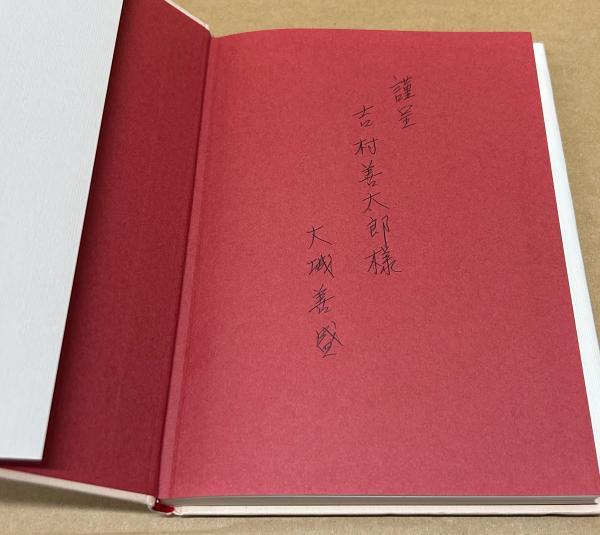 謹呈
吉村善太郎様
大城善盛